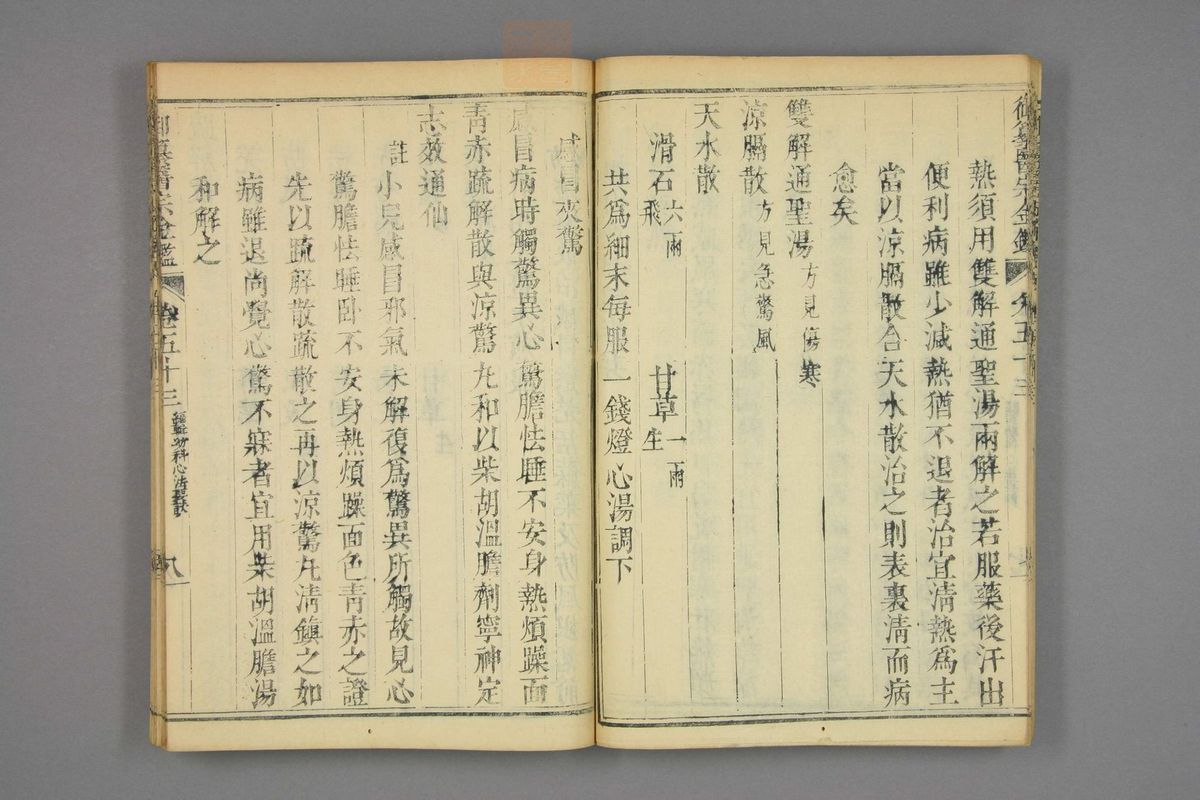 御纂醫宗金鑑 卷五十三
熱須用雙解通聖湯兩解之若服藥後汗出
便利病雖少減熱猶不退者治宜淸熱爲主
當以涼膈散合天水散治之則表裏淸而病
愈矣
雙解通聖湯 方見傷寒
涼膈散 方見急驚風
天水散
滑石 六兩 飛 甘草 一兩 生
共爲細末每服一錢燈心湯調下
感冒夾驚
感冒病時觸驚異心驚膽怯睡不安身熱煩躁面
靑赤疏解散與涼驚丸和以柴胡溫膽劑寧神定
志效通仙
註 小兒感冒邪氣未解復爲驚異所觸故見心
驚膽怯睡卧不安身熱煩躁面色靑赤之證
先以疏解散疏散之再以涼驚丸淸鎭之如
病雖退尚覺心驚不寐者宜用柴胡溫膽湯
和解之
御纂醫宗金鑑 卷五十三 編輯幼科心法要訣 八